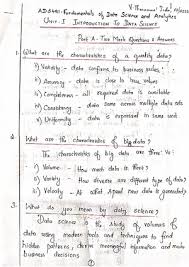 AD3491-Fundamentals of Data Science and Analytics
Unit-I Introduction To Data Science
Part A - Two Mark Questions & Answers
1. What are the characteristics of a quality data?
i) Validity - data confirms to business rules
ii) Accuracy - data is close to true values.
iii) Completeness - all required data is available
iv) Consistency - data same across multiple data sets
v) Uniformity - data is expressed in same unit
2. What are the characteristics of big data?
The characteristics of big data are three Vs:
i) Volume - How much data is there?
ii) Variety - How diverse are different type of data?
iii) Velocity - At what speed new data is generated?
3. What do you mean by data science?
Data science is the study of volumes of
data using modern tools and techniques to find
hidden patterns, derive meaningful information and make
business decisions.
1